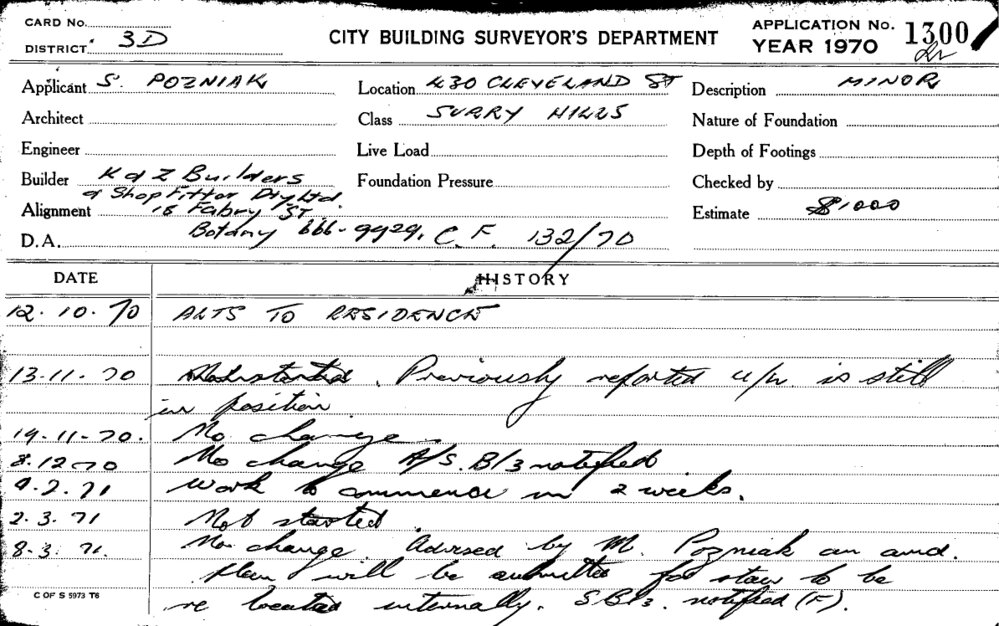 CARD No.
DISTRICT 3D
CITY BUILDING SURVEYOR'S DEPARTMENT
APPLICATION No. 1300
YEAR 1970
Applicant S. POZNIAK
Location 430 CLEVELAND ST
Description MINOR
Architect
Class SURRY HILLS
Nature of Foundation
Engineer
Live Load
Depth of Footings
Builder K & Z Builders
& Shop Fitter Pty Ltd.
Foundation Pressure
Checked by
Alignment 15 Fabry ST.
Estimate $1000
Botany 666-9929.
D.A. C.F. 132/70
DATE HISTORY
12.10.70 ALTS TO RESIDENCE
13.11.70 Not started. Previously reported u/w is still
in position.
19-11-70. No change.
8.12.70 No change A/S.B/3 notified
9.2.71 Work to commence in 2 weeks.
2.3.71 Not started
8.3.71. No change. Advised by M. Pozniak an amd.
plan will be submitted for stair to be
re located internally. S.B/3. notified (F).
C OF S 5973 T6